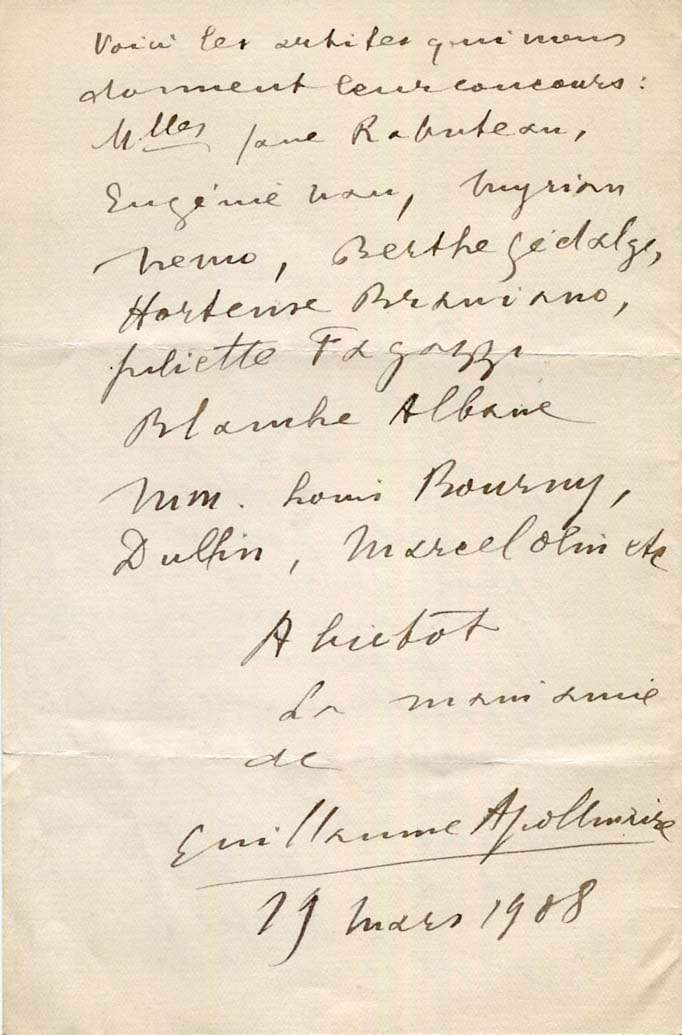 Voici les artistes qui nous
donnent leur concours :
Mlles Jane Rabuteau,
Eugénie Nau, Myriam
Nemo, Berthe Gédalge,
Hortense Braviano,
Juliette Fagazzi
Blanche Albane
MM. Louis Bourny,
Dullin, Marcel Olin etc
A bientôt
La main amie
de
Guillaume Apollinaire
19 mars 1908